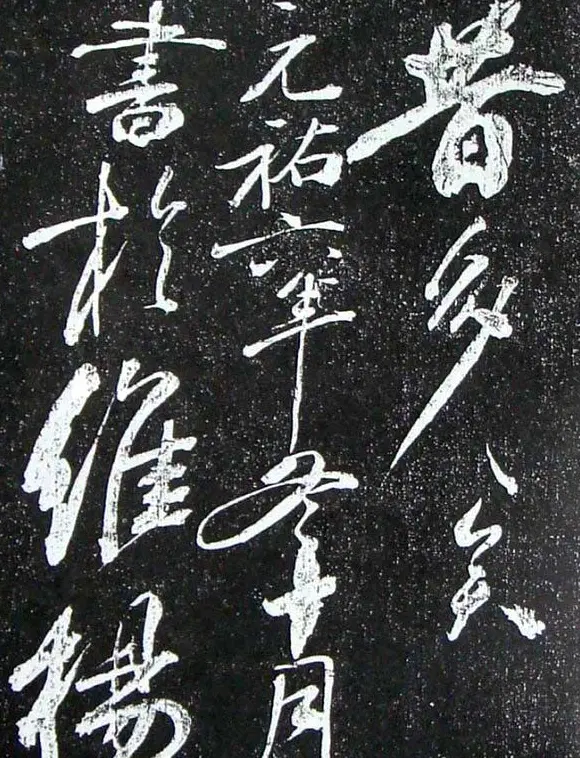 者多矣
元祐六年冬十月
書於維揚